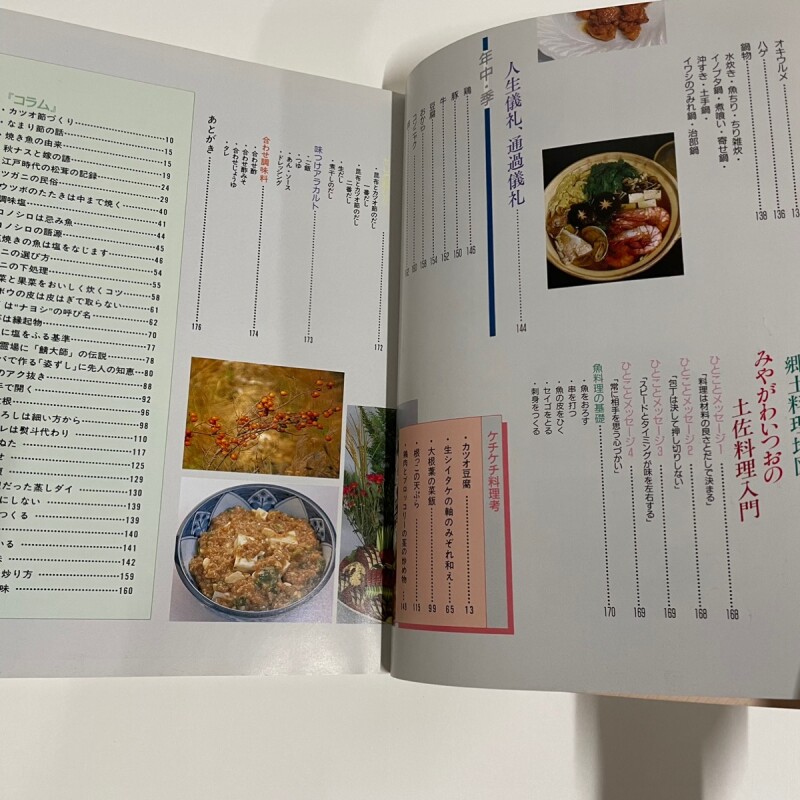 オキウルメ
ハゲ
136
138
鍋物
水炊き・魚ちり・ちり雑炊・
イノブタ鍋・煮喰い・寄せ鍋・
沖すき・土手鍋・
イワシのつみれ鍋・治部鍋
年中・季
人生儀礼、通過儀礼
144
鶏
146
豚
150
牛
152
豆腐
154
158
みやがわいつおの
土佐料理入門
ひとことメッセージ1
「料理は材料の良さとだしで決まる」
168
ひとことメッセージ2
「包丁は決して押し切りしない」
168
ひとことメッセージ3
「スピードとタイミングが味を左右する」
169
ひとことメッセージ4
「常に相手を思う心づかい」
169
魚料理の基礎
170
・魚をおろす
・串を打つ
・魚の皮をひく
・セイゴをとる
・刺身をつくる
ケチケチ料理考
・カツオ豆腐 13
・生シイタケの軸のみぞれ和え 65
・大根葉の菜飯 99
・根っこの天ぷら 115
・鶏肉とブロッコリーの茎の炒め物 141
・昆布とカツオ節のだし
一番だし
二番だし
・生だし
・煮干しのだし
172
味つけアラカルト
173
・二杯
・つゆ
・あん・ソース
・ドレッシング
合わせ調味料
174
・合わせ酢
・合わせ酢みそ
・合わせじょうゆ
・タレ
あとがき
176
『コラム』
・カツオ節づくり 10
・なまり節の話 15
・焼き魚の由来 15
秋ナスと嫁の語 19
江戸時代の松茸の記録 24
ツガニの民俗 29
ウツボのたたきは中まで焼く 40
調味塩 41
コノシロは忌み魚 44
コノシロの語源 45
焼きの魚は塩をなじます 46
ニの選び方 54
ニの下処理 55
菜と果菜をおいしく炊くコツ 58
ボウの皮は皮はぎで取らない 61
は“ナヨシ”の呼び名 62
は縁起物 70
に塩をふる基準 77
霊場に「鯖大師」の伝説 78
バで作る「姿ずし」に先人の知恵 80
のアク抜き 88
手で開く 92
大根 96
ろしは細い方から 98
レは熨斗代わり 110
ぬた 117
せ 125
129
だった蒸しダイ 130
にしない 139
つくる 139
140
いる 141
142
炒り方 159
味 160